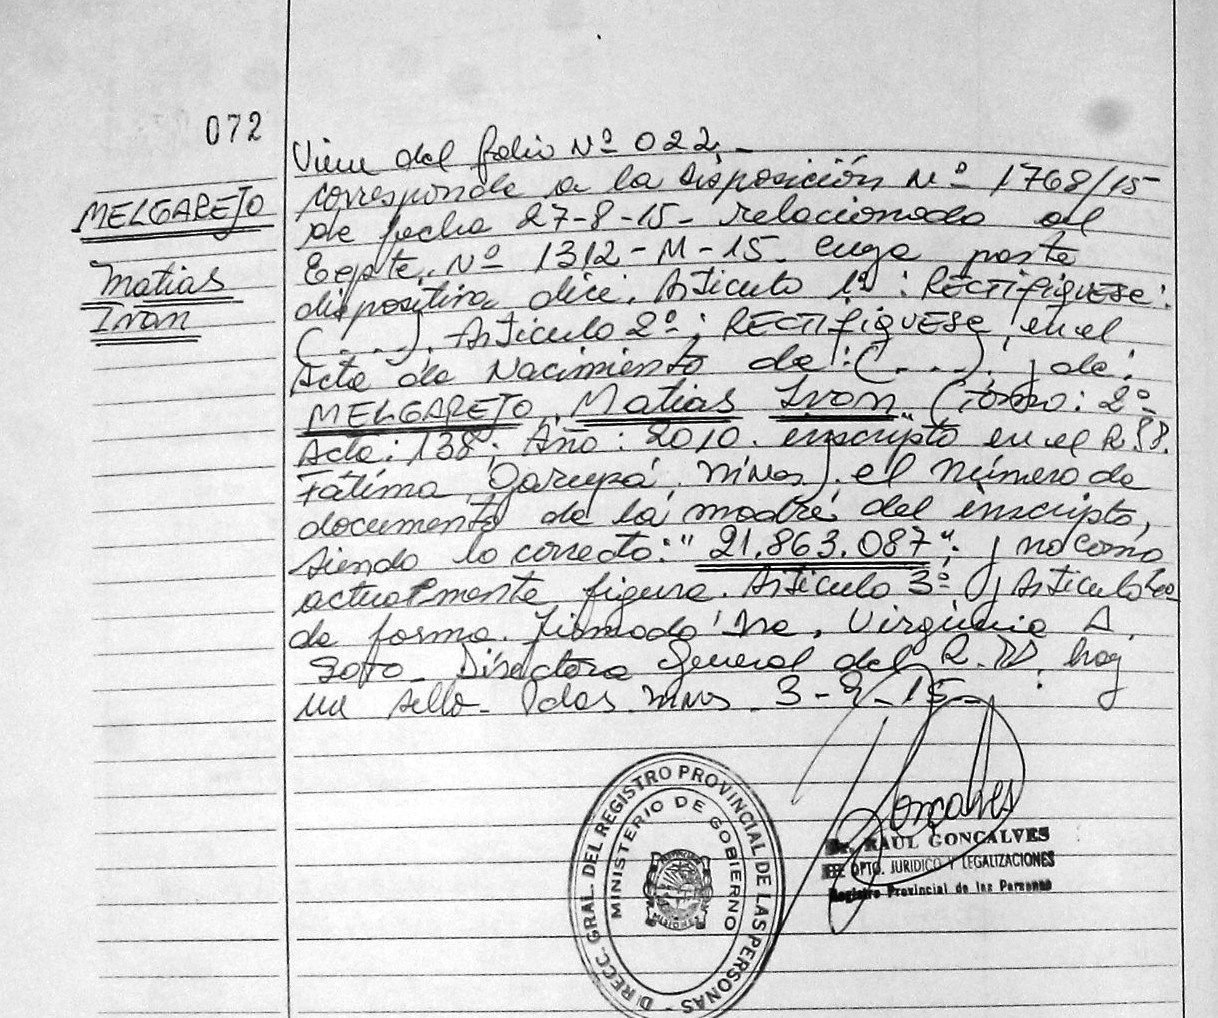 072
MELGAREJO
Matias
Ivan
Viene del folio Nº 022.-
corresponde a la Disposición Nº 1768/15
de fecha 27-8-15- relacionado al
Expte. Nº 1312-M-15- cuya parte
dispositiva dice. Articulo 1º: RECTIFIQUESE:
(....). Articulo 2º: RECTIFIQUESE, en el
Acta de Nacimiento de: (....); y de:
MELGAREJO, Matias Ivan" (Tomo: 2º-
Acta: 138; Año: 2010. inscripto en el R.P.P.
Fátima, Garupá, Mnes). el número de
documento de la madre del inscripto,
siendo lo correcto: "21.863.087"; y no como
actualmente figura. Articulo 3º y Articulo 4º
de forma. Firmado Virginia A.
Soto- Directora General del R.P. hay
un sello- Pdas. Mnes. 3-9-15-
DIRECC. GRAL. DEL REGISTRO PROVINCIAL DE LAS PERSONAS -
MINISTERIO DE GOBIERNO
MISIONES
Goncalves
Dr. RAUL GONCALVES
JEFE DPTO. JURIDICO Y LEGALIZACIONES
Registro Provincial de las Personas